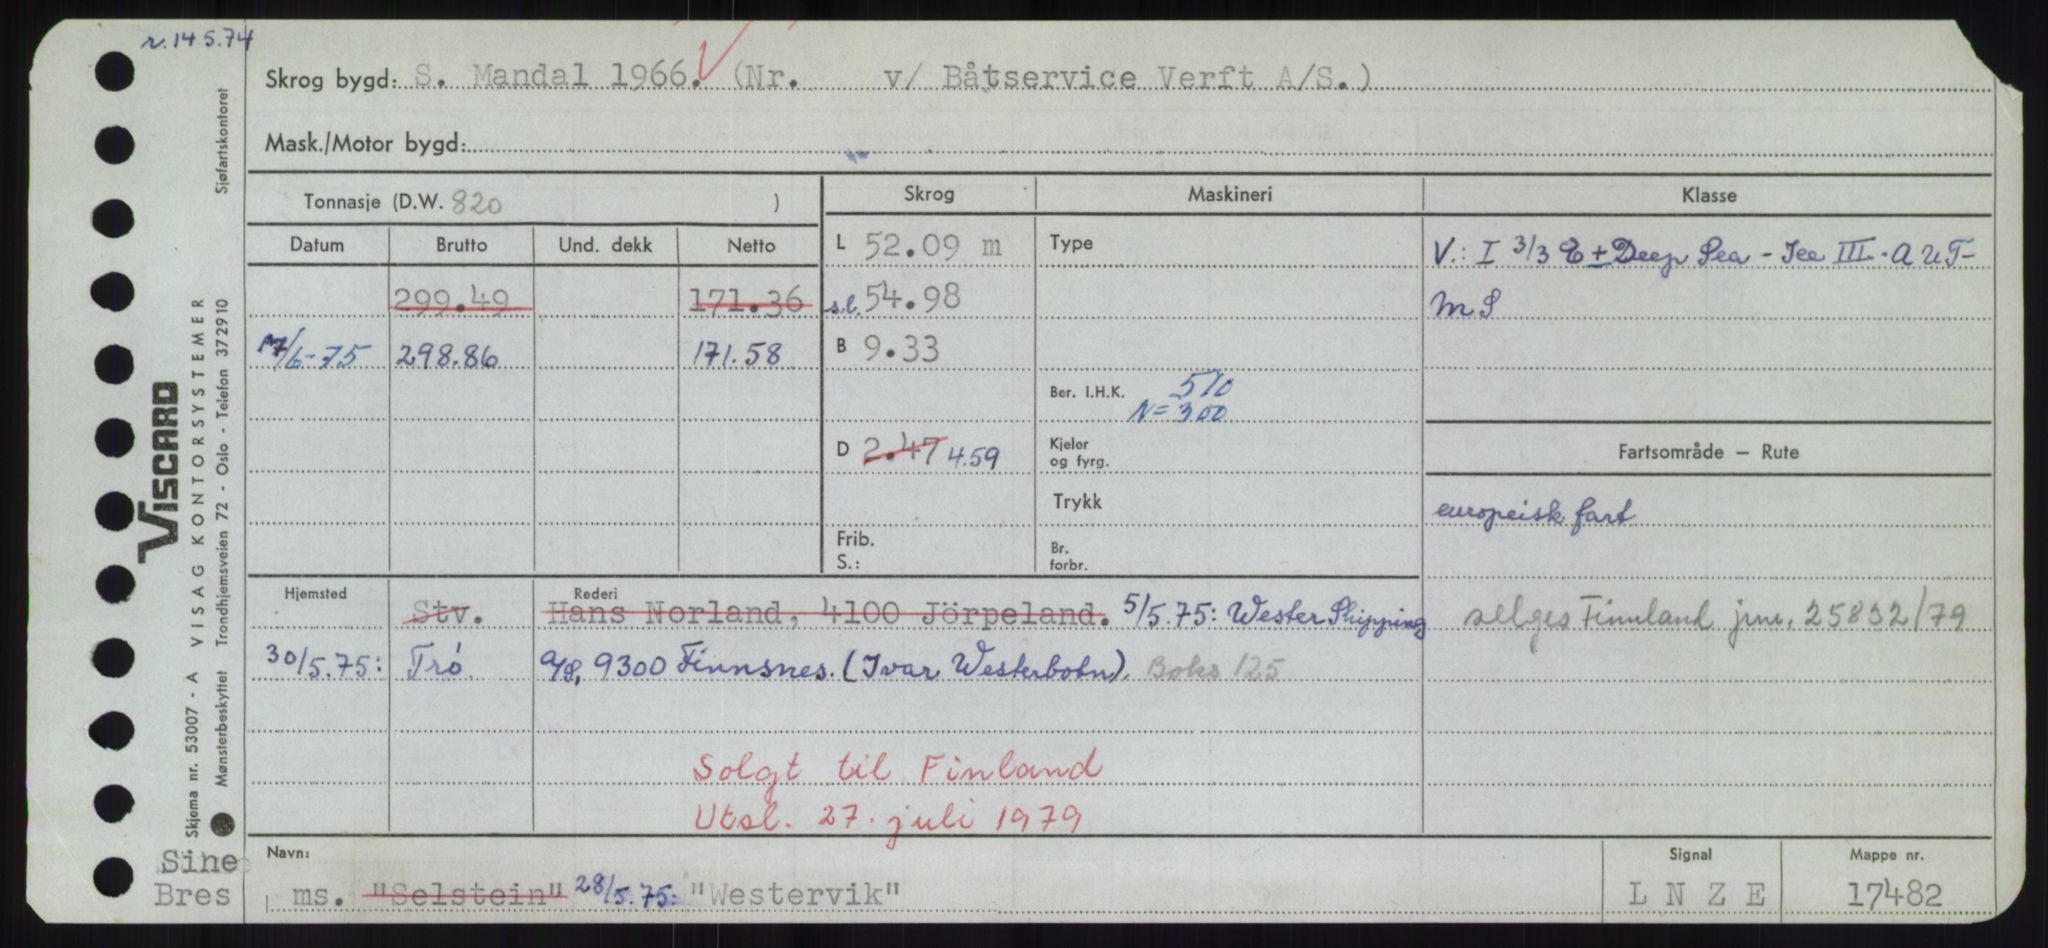 r. 14 5.74
Skrog bygd: S. Mandal 1966. (Nr. v/ Båtservice Verft A/S.)
Mask./Motor bygd:
Tonnasje (D.W. 820 )
Skrog
Maskineri
Klasse
Datum Brutto Und. dekk Netto
L 52.09 m
Type
V.: I 3/3 E ± Deep Sea - Ice III - A U T-
299.49 171.36
s.l. 54.98
M S
/6-75 298.86 171.58
B 9.33
Ber. I.H.K. 510
N = 300
D 2.47 4.59
Kjeler
og fyrg.
Fartsområde — Rute
Trykk
europeisk fart
Frib.
S.:
Br.
forbr.
Hjemsted
Rederi
Stv. Hans Norland, 4100 Jörpeland. 5/5.75: Wester Shipping
selges Finnland jnr. 25832/79
30/5.75: Trö. A/S, 9300 Finnsnes. (Ivar Westerbotn). Boks 125
Solgt til Finland
Utsl. 27. juli 1979
Navn:
Signal
Mappe nr.
ms. "Selstein" 28/5.75: "Westervik"
L N Z E
17482
Sine
Bres
VISCARD
Skjema nr. 53007 - A VISAG KONTORSYSTEMER
Mønsterbeskyttet Trondhjemsveien 72 - Oslo - Telefon 372910 Sjøfartskontoret